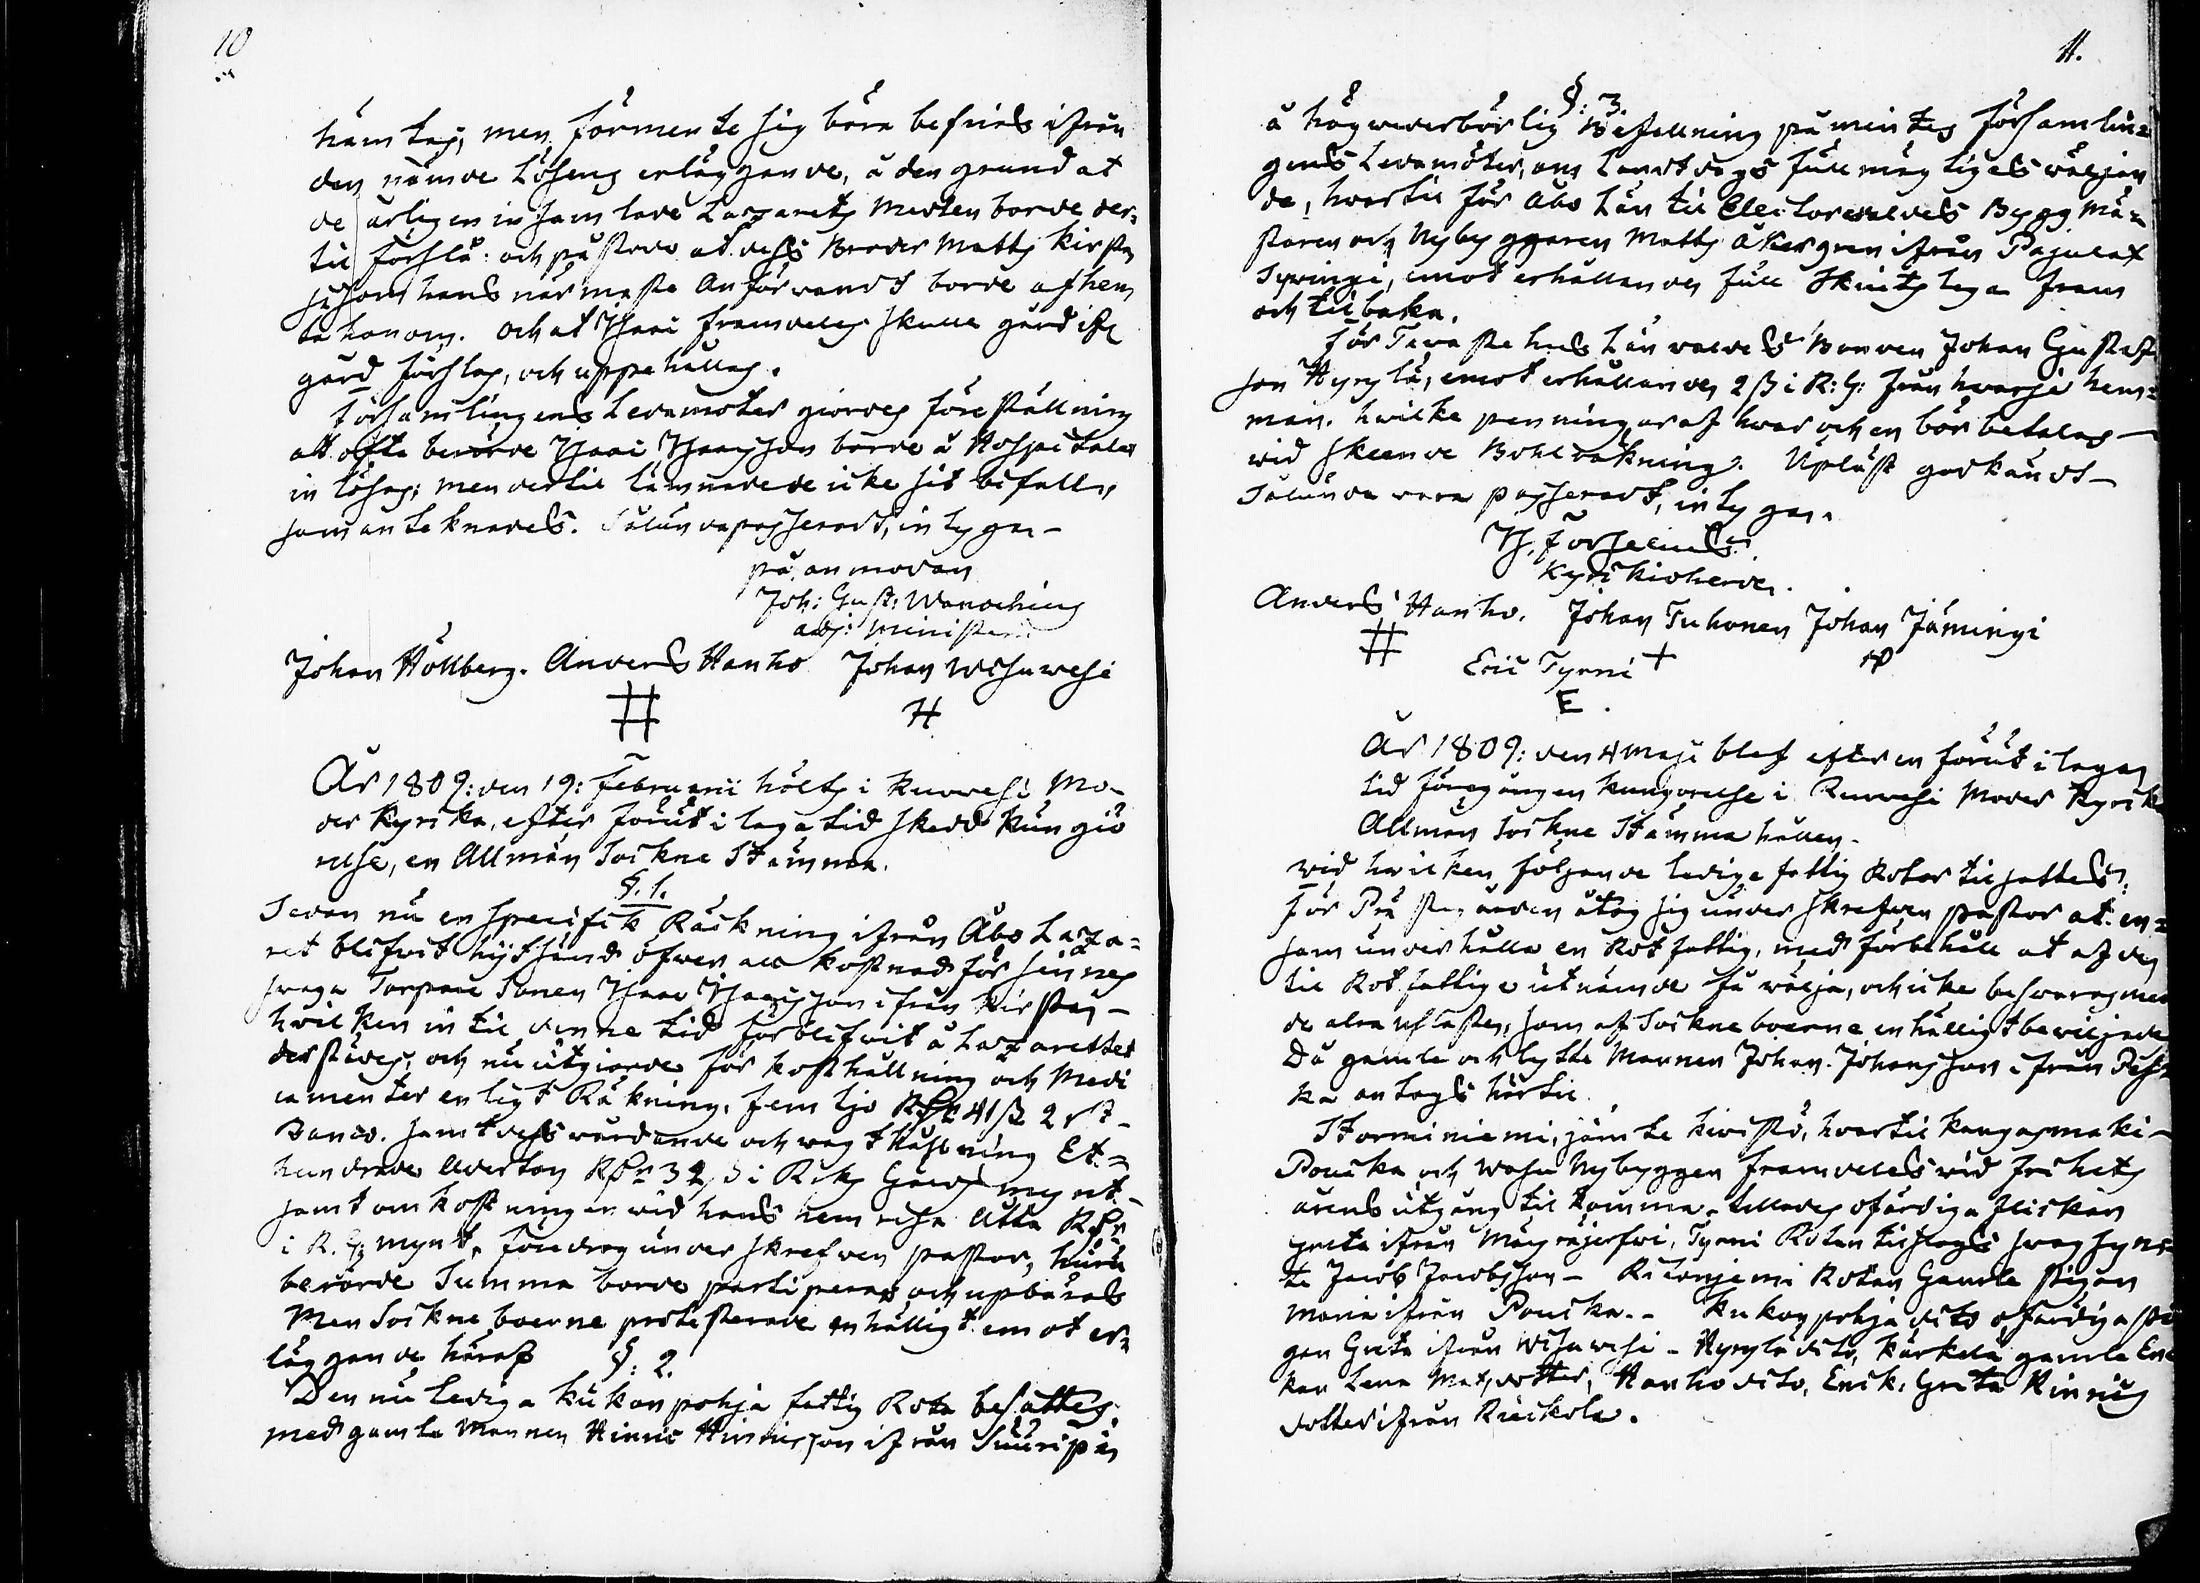 10
hämtas, men förmente sig böra befrias ifrån
den nämde Lösens erläggande, å den grund at
de årligen insamlade Lazarets Medlen borde der-
til förslå: och påstodo at dess Broder Matts Kirstes
såsom hans närmaste Anförvandt borde afhem
ta honom. och at Isaac framdeles skulle gård ifr
gård förslas, och uppehållas.
Församlingens Ledamöter giordes föreställning
att ofta berörde Isaac Isaacsson borde å Hospitalet
inlösas; men dertil lämnade de icke sit bifall,
som anteknades. Sålunda passeradt, intygar
på anmodan
Joh: Gust: Wanochius
adj: Minist
Johan Hollberg. Anders Hanho Johan Wisuwesi
H
År 1809: den 19: Februarii hölts i Ruowesi Mo-
der Kyrcka, efter förut i laga tid skedd kungiö
relse, en Allmän Sockne Stämma.
§. 1.
Sedan nu en specifik Räckning ifrån Åbo Laza-
ret blifvit hijtsänd öfver all kostnad för sinnes
swaga Torpare Sonen Isaac Isaacsson ifrån Kirstes
hvilken in til denne tid förblifvit å Lazarettet
derstädes, och nu utgiorde för kosthållning och Medi
camenter enligt Räkning, femtjo Rdr 41 ß 2 rst
Banco. samt dess wårdande och wagthållning Et-
hundrade Aderton Rdr 32 ß i Riks Gälds mynt
samt omkostningen wid hans hemresa Åtta Rdr
i R. G: mynt, föredrog underskrefwen pastor, huru
berörde Summa borde partiperas och upbäras
Men Sockneboerne protesterade enhälligt emot er-
läggande häraf
§: 2.
Den nu lediga Kukonpohja fattig Rota besattes
med gamla Mannen Hinric Hinricsson ifrån Suuripää
11.
§: 3.
å högwederbörlig Befallning påmintes församlin-
gens Ledamöter, om Landtdags fullmägtigens wäljan
de, hvartil för Åbo Län til Elector waldes Byggmä-
staren och Nybyggaren Matts Åkergren ifrån Pajulax
Springi, emot erhållandes full Skiutslega fram
och tilbaka.
För Tavastehus Län waldes Bonden Johan Gustafs
son Hyrylä, emot erhållandes 2 ß i R: G: från hvarje hem-
man. hwilke penningar af hwar och en bör betalas
wid skeende Bohlräkning. Upläst godkändt
Sålunda vara passeradt, intygar
Is. Forselius
Kyrckioherde.
Anders Hanho. Johan Tuhonen Johan Jämingi
Eric Tyrni +
E.
År 1809: den 4 Maji blef efter en förut i laga
tid föregången kungörelse i Ruowesi Moder Kyrcka
Allmän Sockne Stämma hållen.
wid hwilken följande lediga fattig Rotar tilsattes:
För Prästegården åtog sig underskrefven pastor at en-
sam underhålla en Rotfattig, med förbehåll at af den
til Rotfattige utnämde få wälja, och icke beswäras med
de alra usslaste, som af Sockneboerne enhälligt beviljade
Då gamle och lytte Mannen Johan Johansson ifrån Pess
ka antogs härtil.
Storminiemi, jämte Kivistö, hvartil Kangasmäki
Pouska och Wasu Nybyggen framdeles wid frihets
årens utgång til komma tillades ofärdiga flickan
Greta ifrån Mäyräjerfwi, Tyrni Rotan tilslogs swagsyn-
te Jacob Jacobsson — Ritoniemi Rotan Gamle pigan
Maria ifrån Pouska. — Kukonpohja dito ofärdiga pi
gan Greta ifrån Wisuwesi — Hyrylä dito, Kärkelä gamle En
kan Lena Matsdotter, Hanho dito, Enk: Greta Hinrics
dotter ifrån Ruckola.